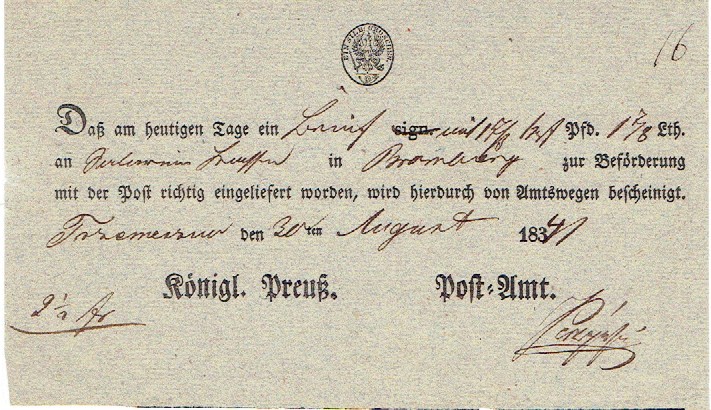 EIN SILB. GROSCHEN
16
Daß am heutigen Tage ein Brief sign. mit Pfd. 1 7/8 Lth.
an in Bromberg zur Beförderung
mit der Post richtig eingeliefert worden, wird hierdurch von Amtswegen bescheinigt.
Trzemeszno den 30 ten August 1841
Königl. Preuß. Post-Amt.